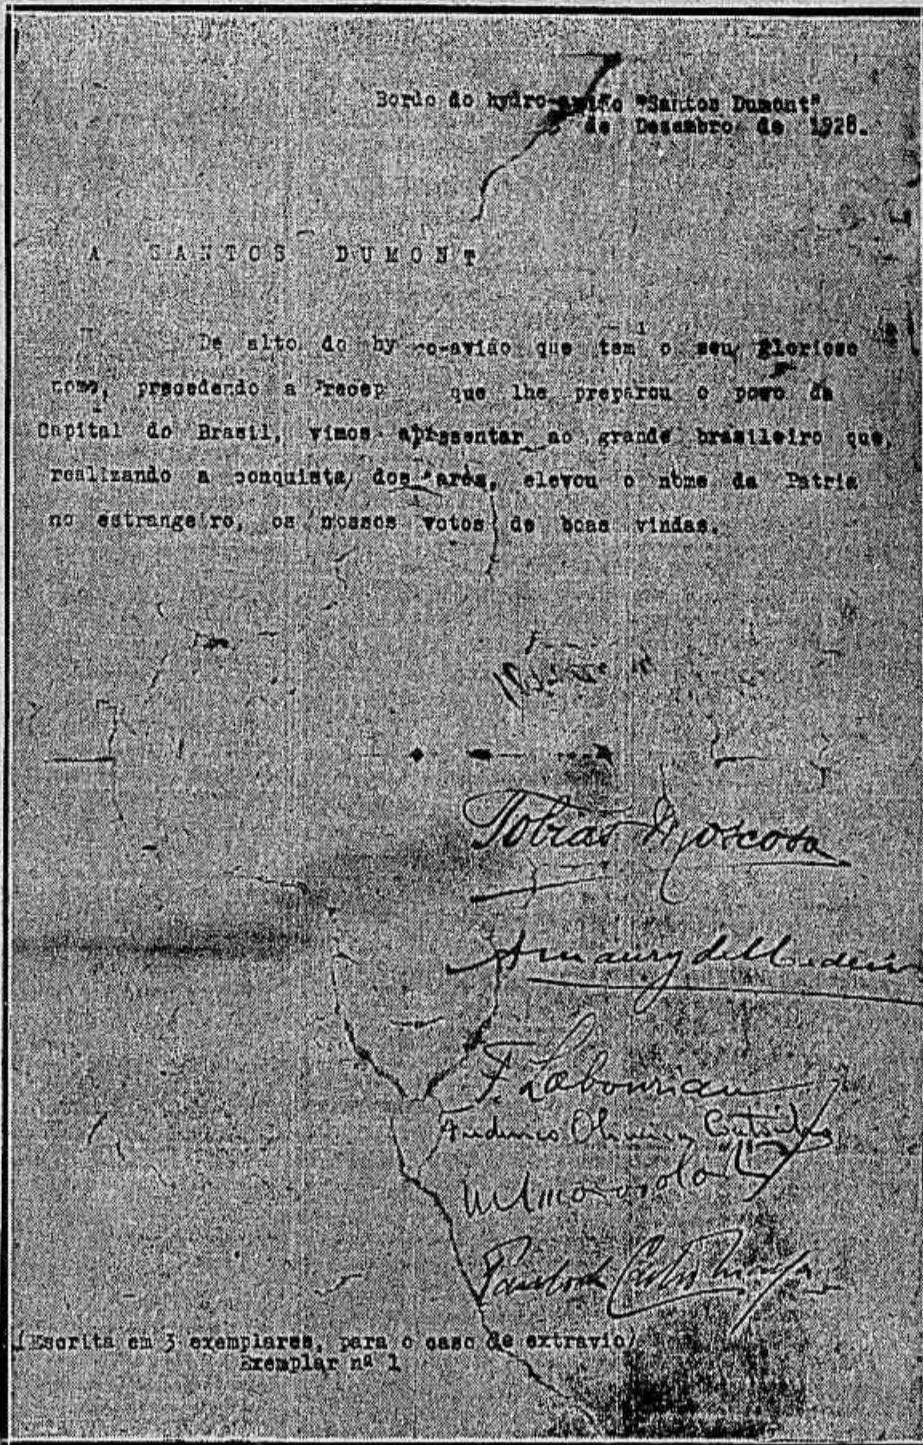 Bordo do hydro-avião "Santos Dumont"
de Dezembro de 1928.
A SANTOS DUMONT
De alto do hy ro-avião que tem o seu glorioso
nome, precedendo a recep que lhe preparou o povo da
Capital do Brasil, vimos apresentar ao grande brasileiro que,
realizando a conquista dos ares, elevou o nome da Patria
no estrangeiro, os nossos votos de boas vindas.
Tobias Moscoso
Amaury de Medeiros
F. Labouriau
Paulo de Castro Maya
(Escrita em 3 exemplares, para o caso de extravio)
Exemplar nº 1